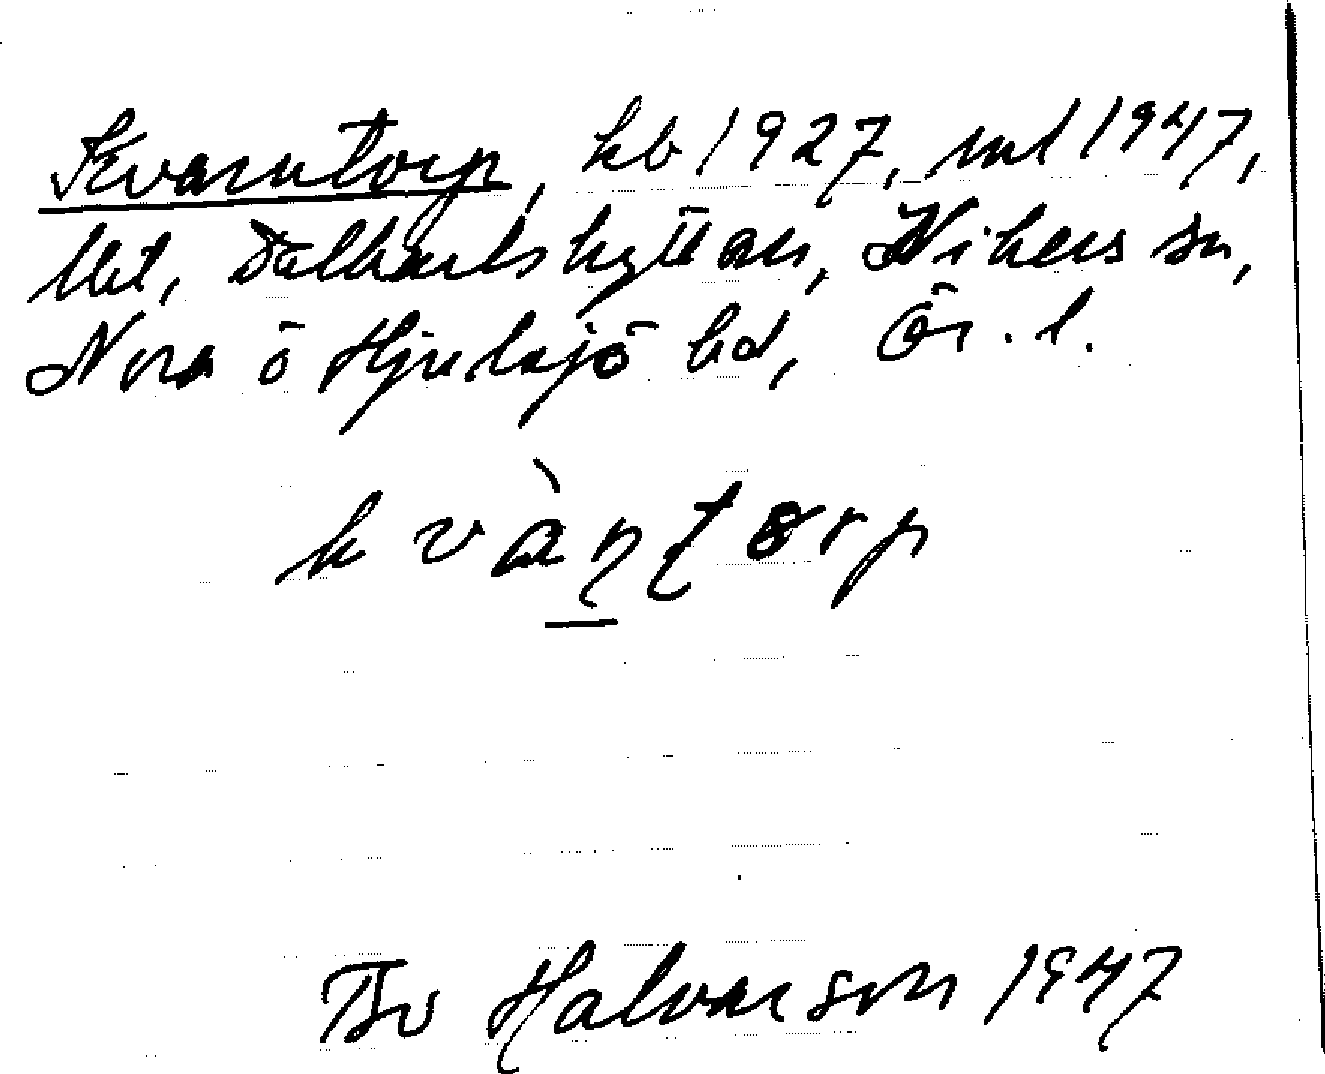 Kvarntorp, kb 1927, ml 1947,
lht, Dalkarlshyttan, Vikers sn,
Nora o Hjulsjö bd, Ör. l.
k v à ɳ ʈ ɵ r p
Tsv Halvarson 1947